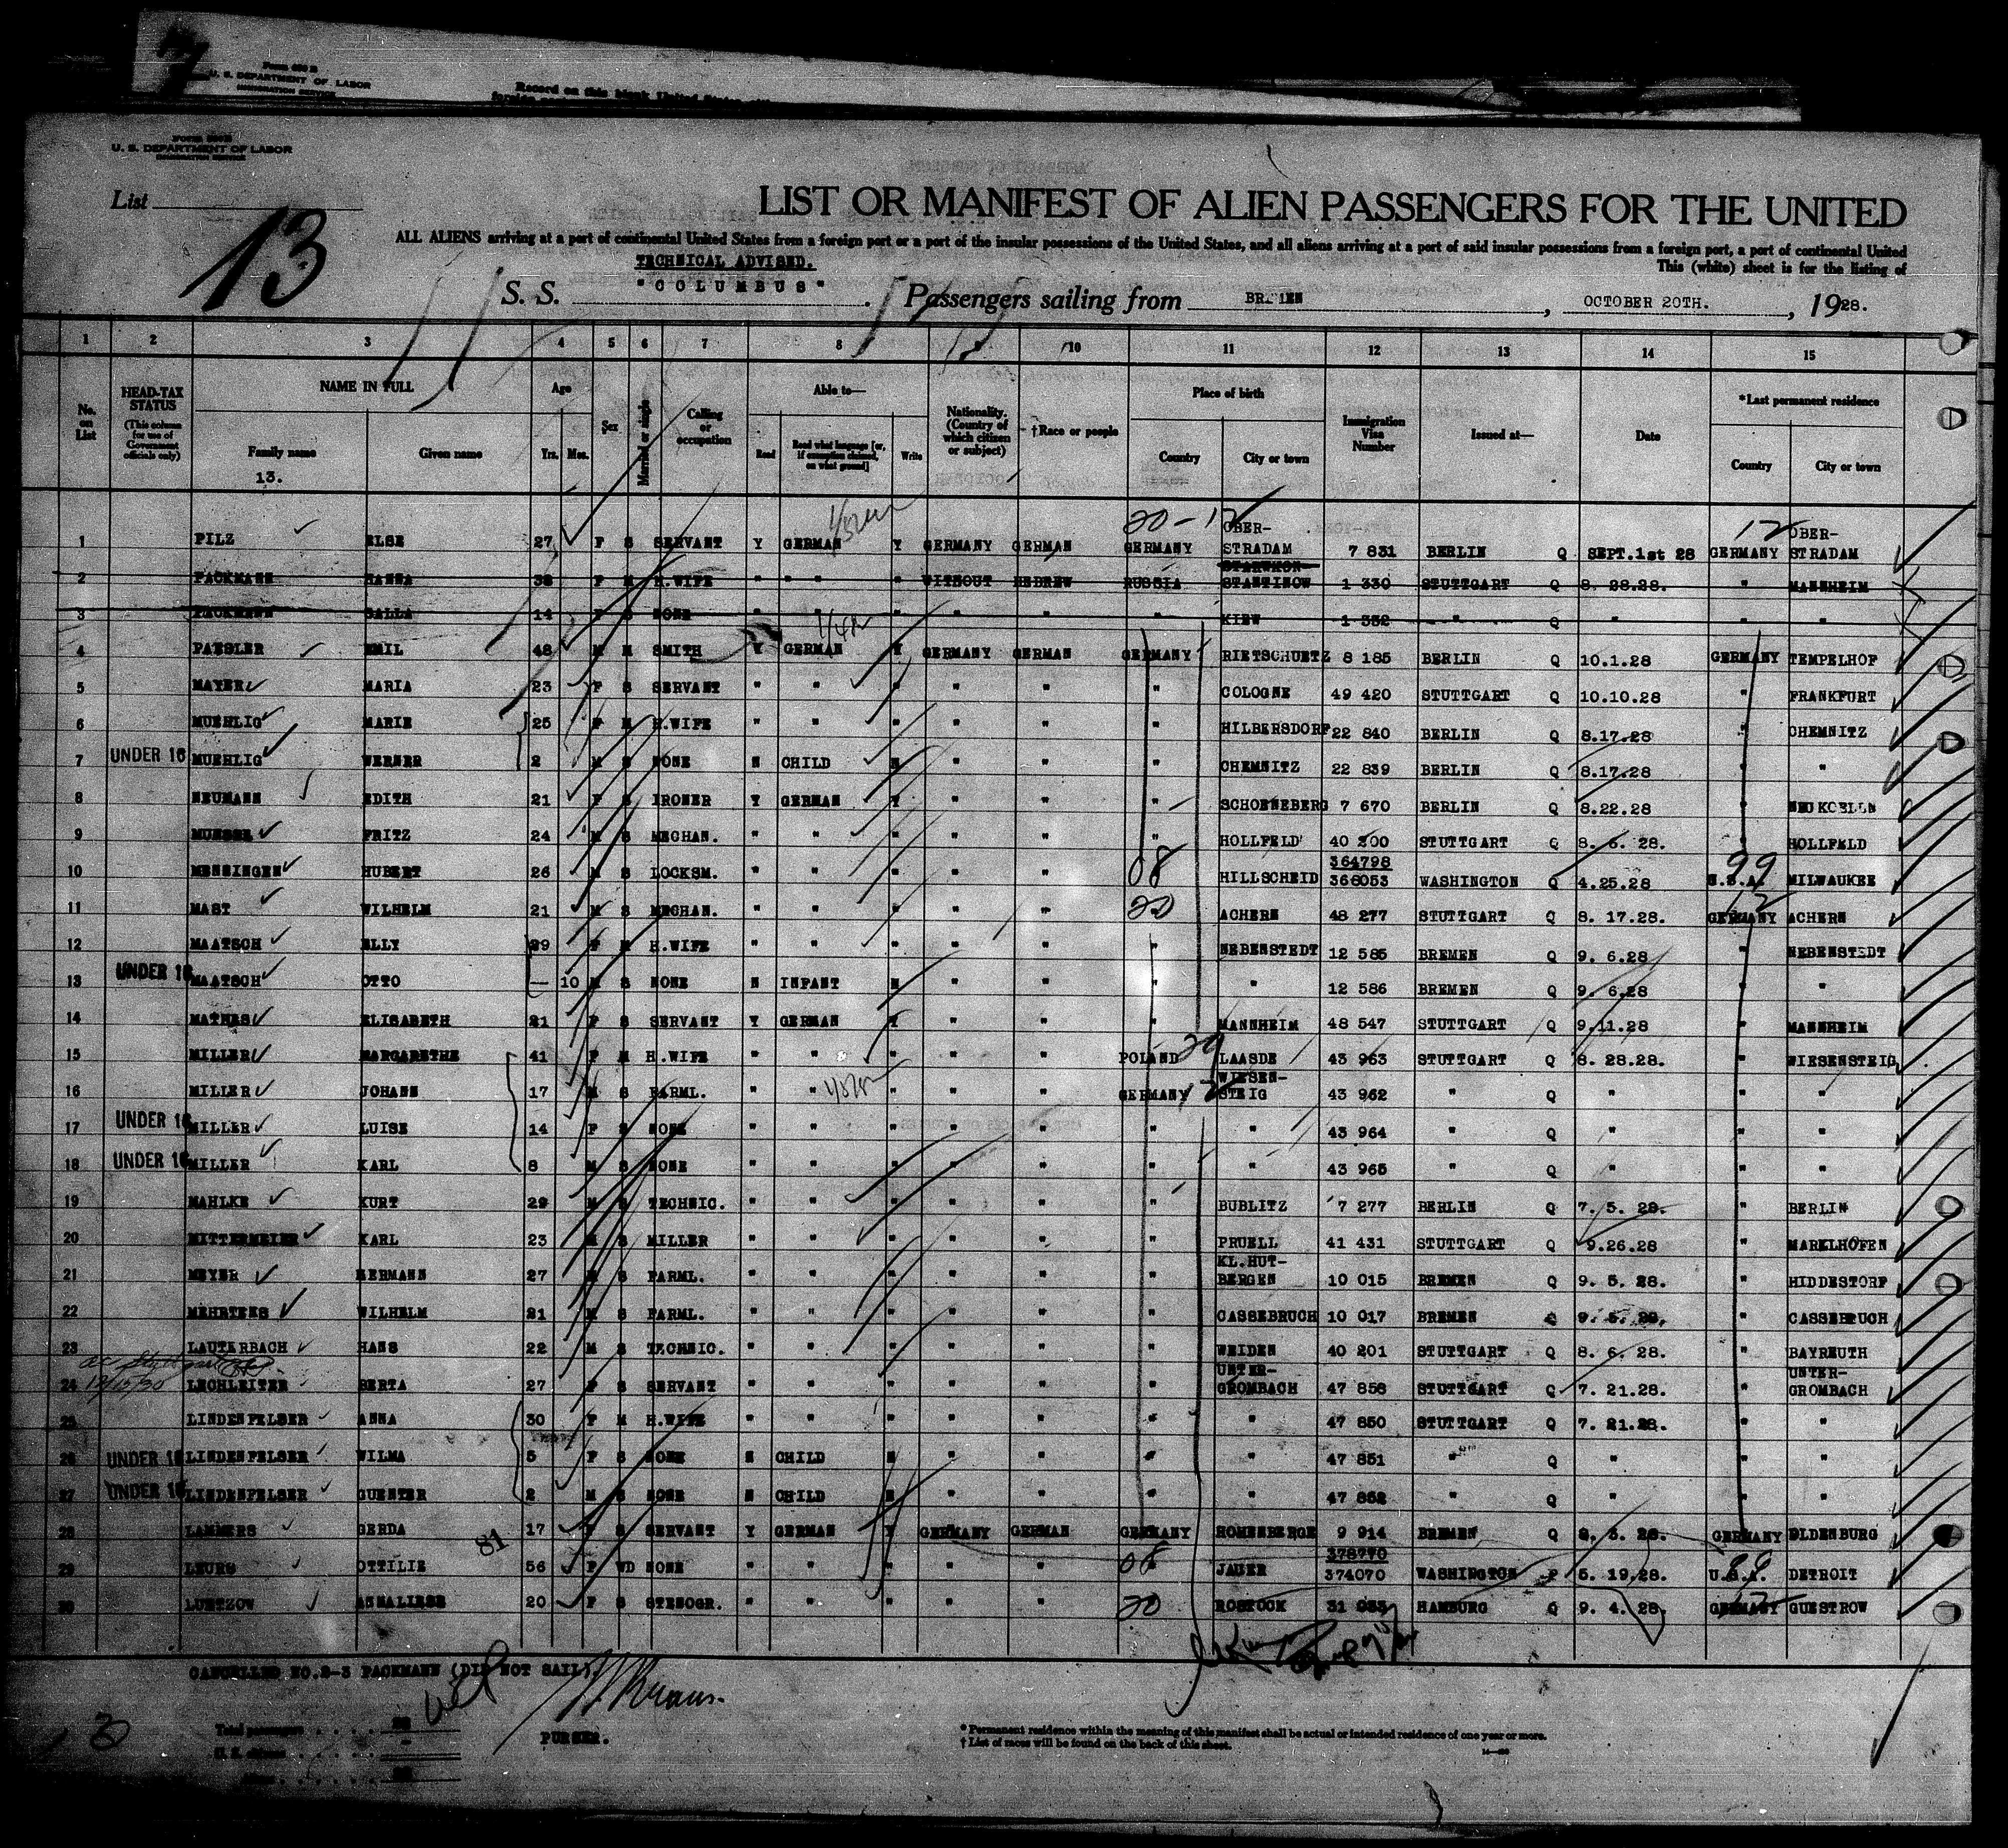 U. S. DEPARTMENT OF LABOR
IMMIGRATION SERVICE
Record on this blank United States
U. S. DEPARTMENT OF LABOR
IMMIGRATION SERVICE
List
13
LIST OR MANIFEST OF ALIEN PASSENGERS FOR THE UNITED
ALL ALIENS arriving at a port of continental United States from a foreign port or a port of the insular possessions of the United States, and all aliens arriving at a port of said insular possessions from a foreign port, a port of continental United
TECHNICAL ADVISED.
This (white) sheet is for the listing of
S. S. "COLUMBUS". Passengers sailing from BREMEN, OCTOBER 20TH., 1928.
1 2 3 4 5 6 7 8 9 10 11 12 13 14 15
No. on List
HEAD-TAX STATUS (This column for use of Government officials only)
NAME IN FULL
Family name Given name
13.
Age
Yrs. Mos.
Sex
Married or single
Calling or occupation
Able to—
Read Read what language [or, if exemption claimed, on what ground] Write
Nationality. (Country of which citizen or subject)
†Race or people
Place of birth
Country City or town
Immigration Visa Number
Issued at—
Date
*Last permanent residence
Country City or town
20-12 12
1 PILZ ELSE 27 F S SERVANT Y GERMAN Y GERMANY GERMAN GERMANY OBER-STRADAM 7 831 BERLIN Q SEPT.1st 28 GERMANY OBER-STRADAM
2 PACKMANN HANNA 38 F M H.WIFE " " " WITHOUT HEBREW RUSSIA STANTINOW 1 330 STUTTGART Q 8. 28.28. " MANNHEIM
3 PACKMANN SALLA 14 F S NONE " " " " " " KIEW 1 332 " Q " " "
4 PAESLER EMIL 48 M M SMITH Y GERMAN Y GERMANY GERMAN GERMANY RIETSCHUETZ 8 185 BERLIN Q 10.1.28 GERMANY TEMPELHOF
5 MAYER MARIA 23 F S SERVANT " " " " " " COLOGNE 49 420 STUTTGART Q 10.10.28 " FRANKFURT
6 MUEHLIG MARIE 25 F M H.WIFE " " " " " " HILBERSDORF 22 840 BERLIN Q 8.17.28 " CHEMNITZ
7 UNDER 16 MUEHLIG WERNER 2 M S NONE N CHILD N " " " CHEMNITZ 22 839 BERLIN Q 8.17.28 " "
8 NEUMANN EDITH 21 F S IRONER Y GERMAN Y " " " SCHOENEBERG 7 670 BERLIN Q 8.22.28 " NEUKOELLN
9 FRITZ 24 M S MECHAN. " " " " " " HOLLFELD 40 200 STUTTGART Q 8. 6. 28. " HOLLFELD
10 MENSINGEN HUBERT 26 M S LOCKSM. " " " " " 08 HILLSCHEID 364798 368053 WASHINGTON Q 4.25.28 U.S.A. 99 MILWAUKEE
11 MAST WILHELM 21 M S MECHAN. " " " " " 20 ACHERN 48 277 STUTTGART Q 8. 17.28. GERMANY 12 ACHERN
12 MAATSCH ELLY 29 F M H.WIFE " " " " " " NEBENSTEDT 12 585 BREMEN Q 9. 6.28 " NEBENSTEDT
13 UNDER 16 MAATSCH OTTO — 10 M S NONE N INFANT N " " " " 12 586 BREMEN Q 9. 6.28 " "
14 MATHES ELISABETH 21 F S SERVANT Y GERMAN Y " " " MANNHEIM 48 547 STUTTGART Q 9.11.28 " MANNHEIM
15 MILLER MARGARETHE 41 F M H.WIFE " " " " " POLAND 29 LAASDE 43 963 STUTTGART Q 8. 28.28. " WIESENSTEIG
16 MILLER JOHANN 17 M S FARML. " " " " " GERMANY 12 WIESEN-STEIG 43 962 " Q " " "
17 UNDER 16 MILLER LUISE 14 F S NONE " " " " " " " 43 964 " Q " " "
18 UNDER 16 MILLER KARL 8 M S NONE " " " " " " " 43 965 " Q " " "
19 MAHLKE KURT 29 M S TECHNIC. " " " " " " BUBLITZ 7 277 BERLIN Q 7. 5. 28. " BERLIN
20 MITTERMEIER KARL 23 M S MILLER " " " " " " PRUELL 41 431 STUTTGART Q 9.26.28 " MARKLHOFEN
21 MEYER HERMANN 27 M S FARML. " " " " " " KL.HUT-BERGEN 10 015 BREMEN Q 9. 5. 28. " HIDDESTORF
22 MEHRTENS WILHELM 21 M S FARML. " " " " " " CASSEBRUCH 10 017 BREMEN Q 9. 5. 28. " CASSEBRUCH
23 LAUTERBACH HANS 22 M S TECHNIC. " " " " " " WEIDEN 40 201 STUTTGART Q 8. 6. 28. " BAYREUTH
24 LECHLEITER BERTA 27 F S SERVANT " " " " " " UNTER-GROMBACH 47 858 STUTTGART Q 7. 21.28. " UNTER-GROMBACH
25 LINDENFELSER ANNA 30 F M H.WIFE " " " " " " " 47 850 STUTTGART Q 7. 21.28. " "
26 UNDER 16 LINDENFELSER WILMA 5 F S NONE N CHILD N " " " " 47 851 " Q " " "
27 UNDER 16 LINDENFELSER GUENTER 2 M S NONE N CHILD N " " " " 47 852 " Q " " "
28 LAMMERS GERDA 17 F S SERVANT Y GERMAN Y GERMANY GERMAN GERMANY HOHENBERGE 9 914 BREMEN Q 8. 3. 28. GERMANY OLDENBURG
29 OTTILIE 56 F WD NONE " " " " " 08 JAUER 378770 374070 WASHINGTON 5. 19.28. U.S.A. 99 DETROIT
30 LUETZOW ANNALIESE 20 F S STENOGR. " " " " " 20 ROSTOCK HAMBURG Q 9. 4. 28. GERMANY 12 GUESTROW
81
CANCELLED NO.2-3 PACKMANN (DID NOT SAIL).
PURSER.
Total passengers
U. S. citizens
Aliens
30
* Permanent residence within the meaning of this manifest shall be actual or intended residence of one year or more.
† List of races will be found on the back of this sheet.